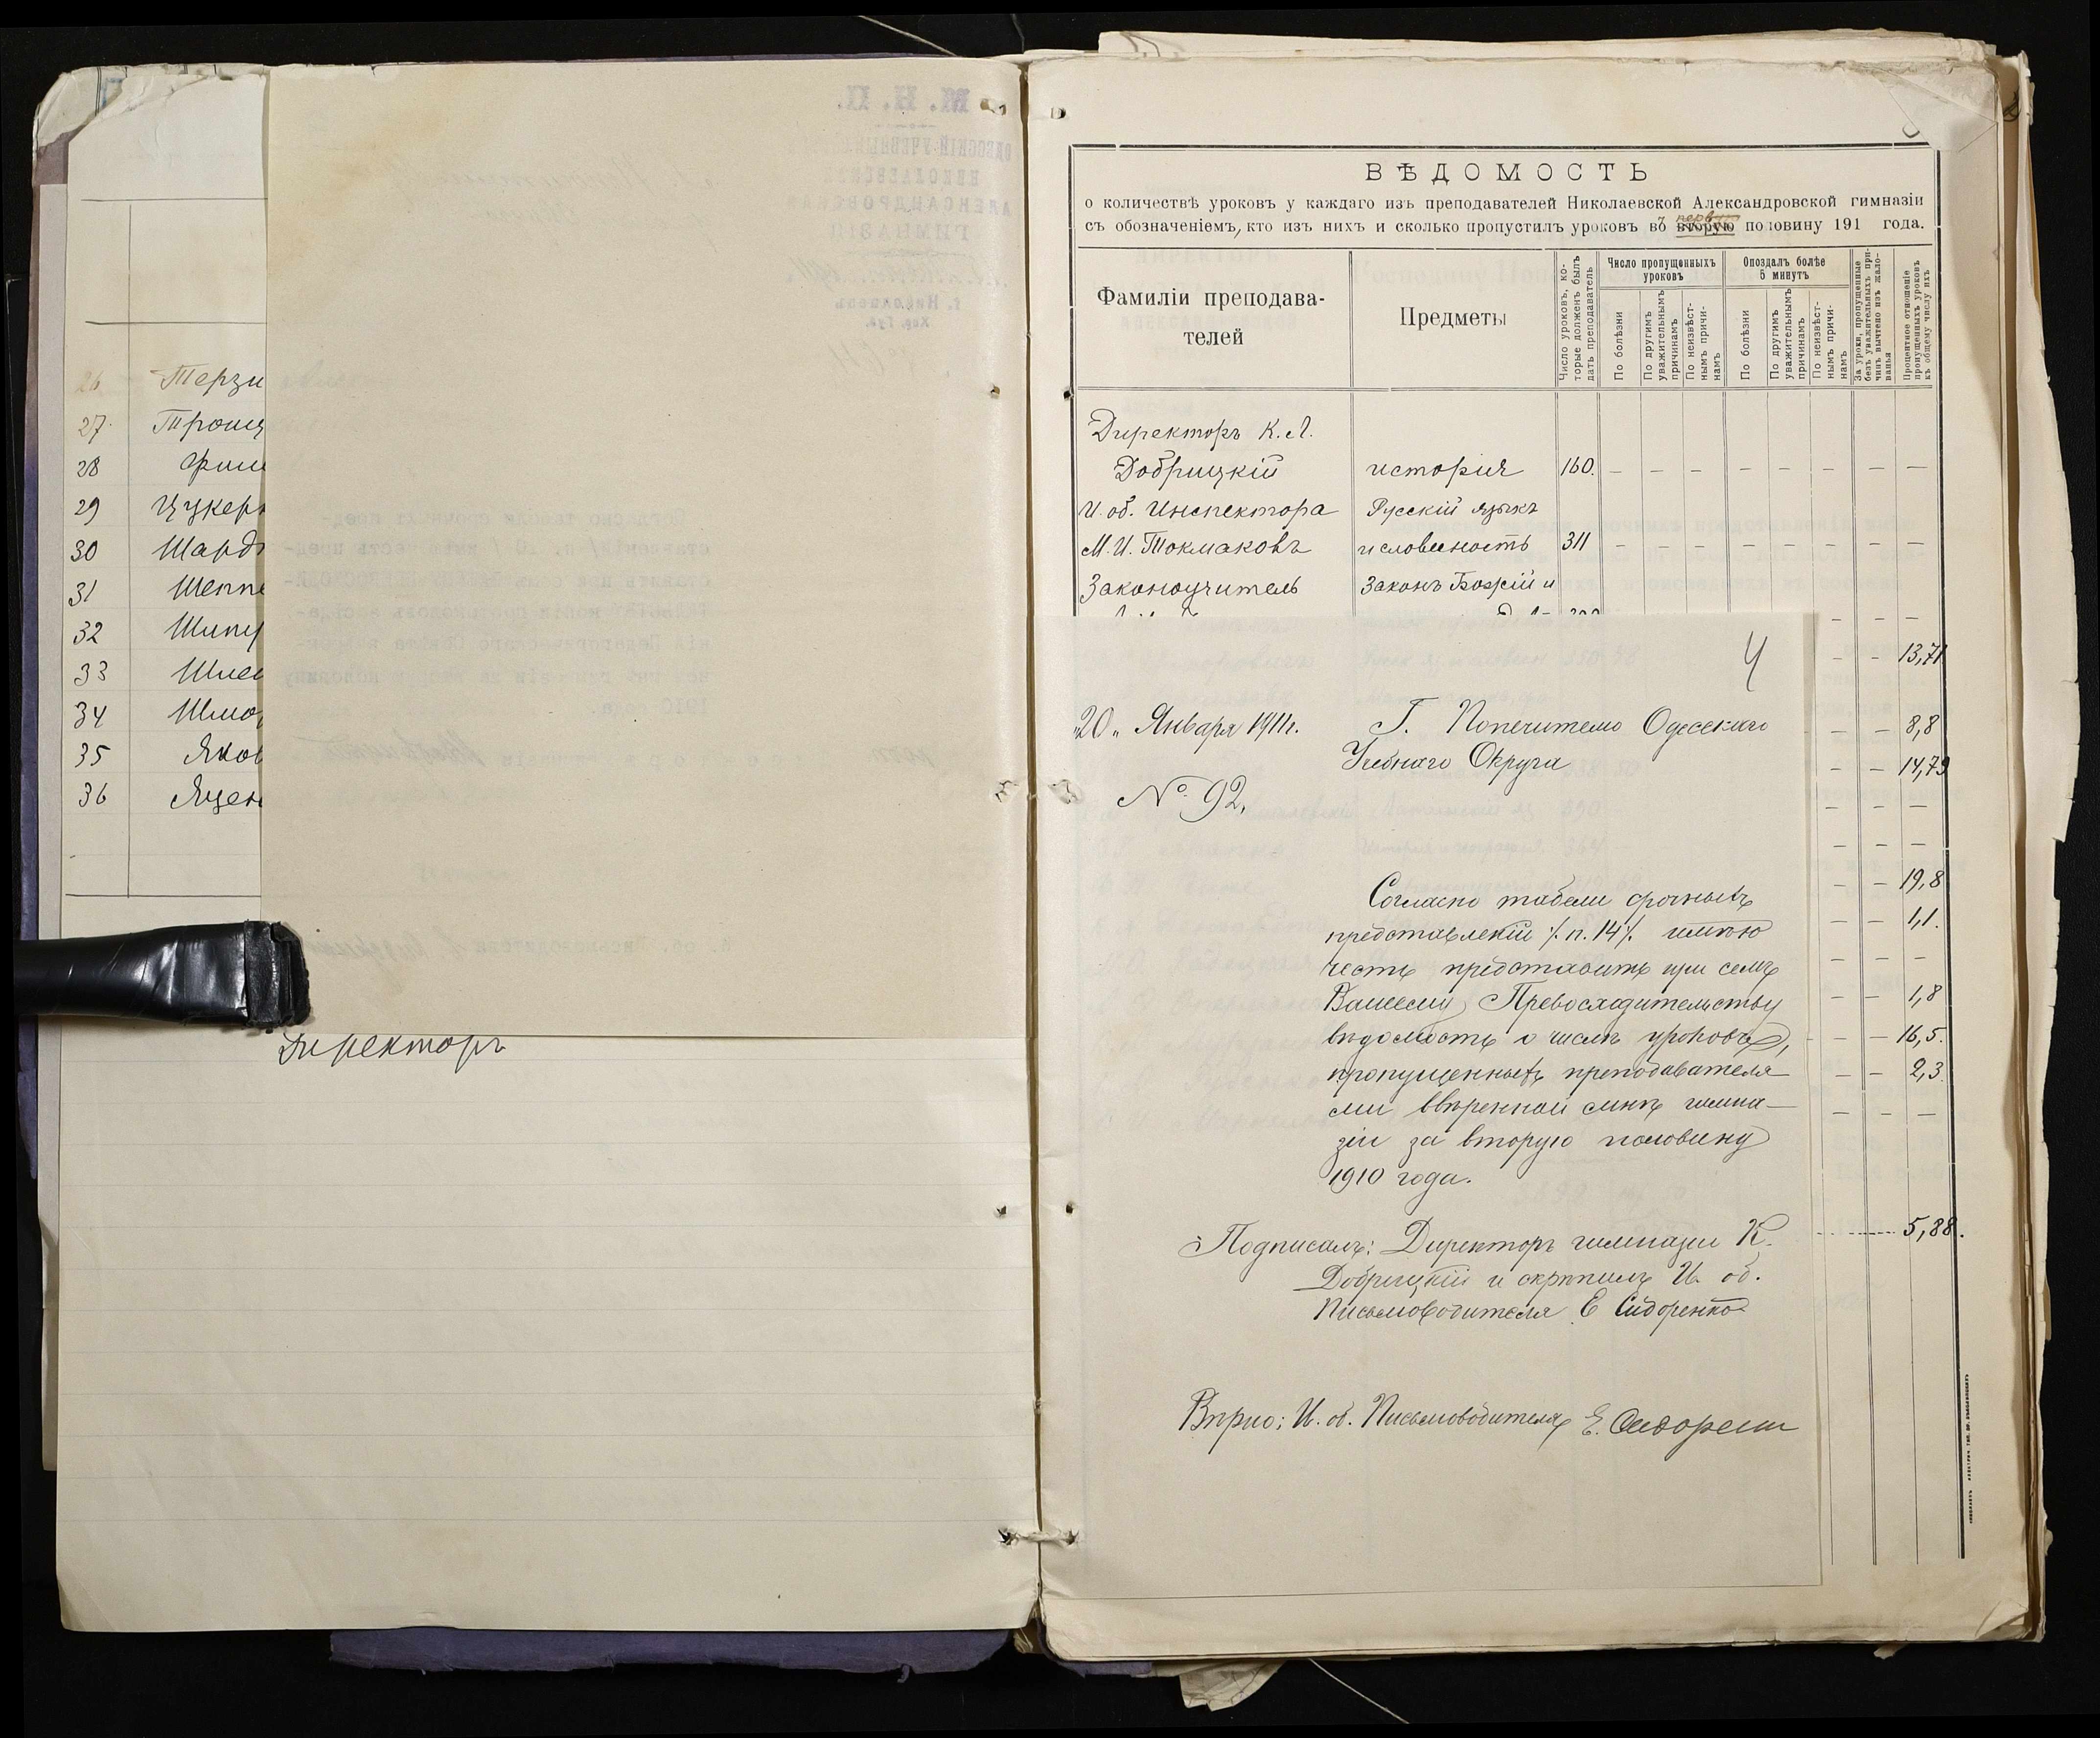 26 Терзи
27 Трощ
28 Фили
29 Цукер
30 Шард
31 Шеппе
32 Шипу
33 Шлей
34 Шмо
35 Яков
36 Яцен
Директоръ
ВѢДОМОСТЬ
о количествѣ уроковъ у каждаго изъ преподавателей Николаевской Александровской гимназіи
съ обозначеніемъ, кто изъ нихъ и сколько пропустилъ уроковъ въ вторую половину 191 года.
Фамиліи преподава-
телей
Предметы
Число уроковъ, ко-
торые долженъ былъ
дать преподаватель
Число пропущенныхъ
уроковъ
По болѣзни
По другимъ
уважительнымъ
причинамъ
По неизвѣст-
нымъ причи-
намъ
Опоздалъ болѣе
5 минутъ
По болѣзни
По другимъ
уважительнымъ
причинамъ
По неизвѣст-
нымъ причи-
намъ
За уроки, пропущенные
безъ уважительныхъ при-
чинъ вычтено изъ жало-
ванья
Процентное отношеніе
пропущенныхъ уроковъ
къ общему числу ихъ
Директоръ К. Л.
Добрицкій исторія 160. – – – – – – – –
И. об. Инспектора Русскій языкъ
М. И. Токмаковъ и словесность 311 – – – – – – – –
Законоучитель Законъ Божій и
– – –
– – 13,71
– – 8,8
– – 14,79
– – –
– – –
– – 19,8
– – 1,1.
– – –
– – 1,8
– – 16,5.
– – 2,3
– – –
5,88.
4
„20„ Января 1911г. Г. Попечителю Одесскаго
Учебнаго Округа
№ 92.
Согласно табели срочныхъ
представленій /.п. 14/. имѣю
честь представить при семъ
Вашему Превосходительству
вѣдомость о числѣ уроковъ,
пропущенныхъ преподавателя–
ми ввѣренной мнѣ гимна–
зіи за вторую половину
1910 года.
Подписалъ: Директоръ гимназіи К.
Добрицкій и скрѣпилъ И. об.
Письмоводителя Е Сидоренко
Вѣрно: И. об. Письмоводителя Е. Сидоренко